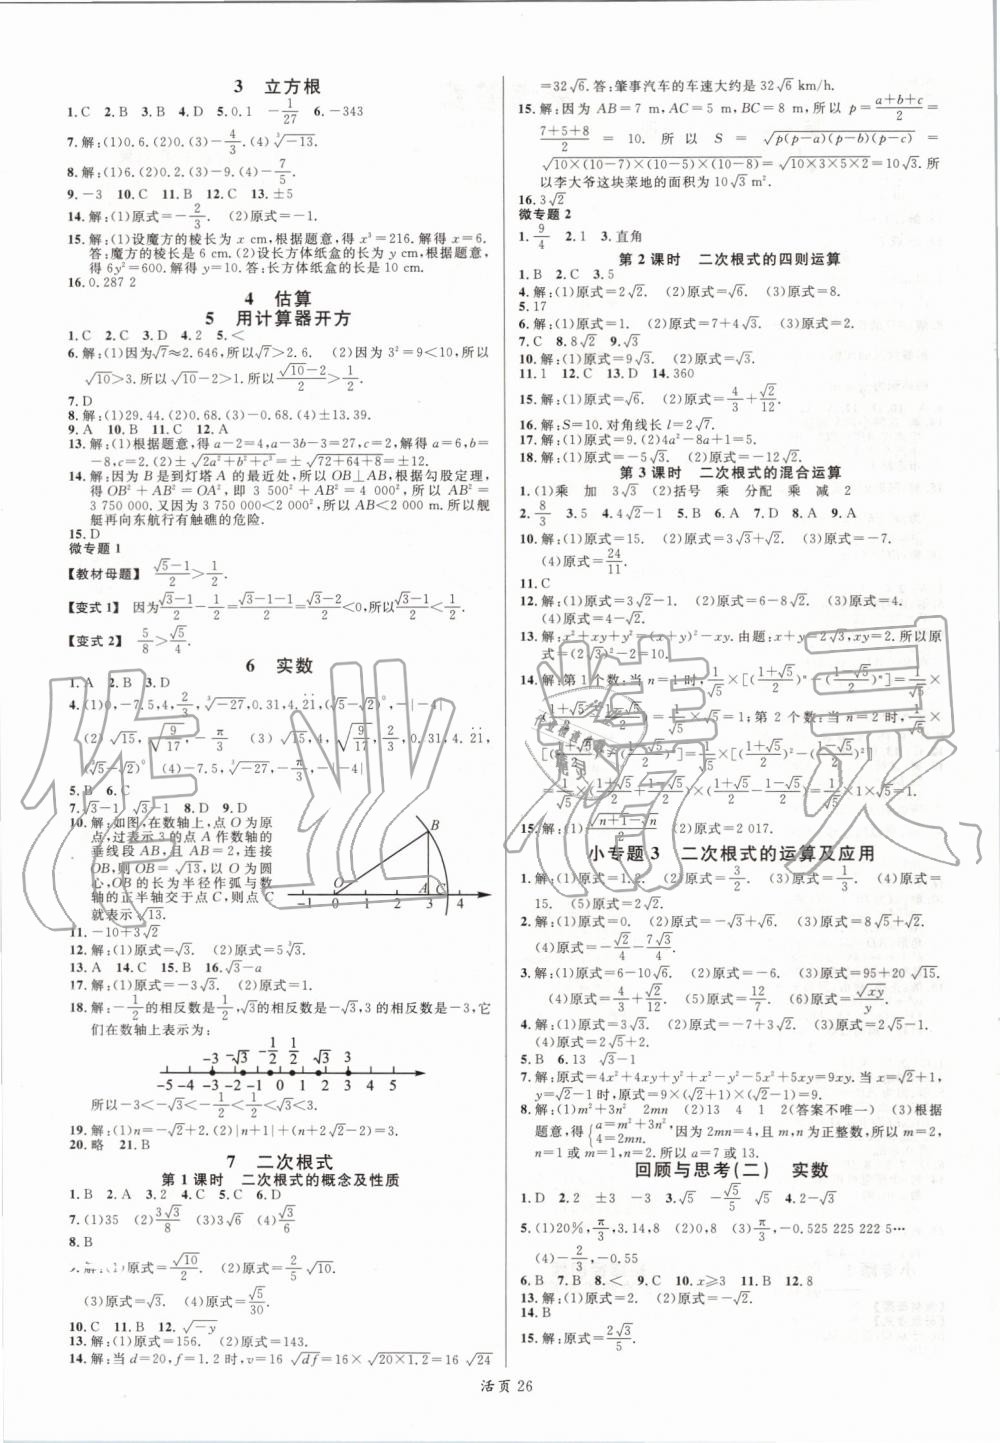 3 立方根
1.C 2.B 3.B 4.D 5.0.1 -1/27 6.-343
7.解:(1)0.6.(2)0.(3)-4/3.(4)∛-13.
8.解:(1)6.(2)0.2.(3)-9.(4)-7/5.
9.-3 10.C 11.B 12.C 13.±5
14.解:(1)原式=-2/3. (2)原式=-1.
15.解:(1)设魔方的棱长为 x cm,根据题意,得 x³=216.解得 x=6.
答:魔方的棱长是 6 cm.(2)设长方体纸盒的长为 y cm,根据题意,
得 6y²=600.解得 y=10.答:长方体纸盒的长是 10 cm.
16.0.287 2
4 估算
5 用计算器开方
1.C 2.C 3.D 4.2 5.<
6.解:(1)因为√7≈2.646,所以√7>2.6. (2)因为 3²=9<10,所以
√10>3.所以√10-2>1.所以(√10-2)/2>1/2.
7.D
8.解:(1)29.44.(2)0.68.(3)-0.68.(4)±13.39.
9.A 10.B 11.C 12.A
13.解:(1)根据题意,得 a-2=4,a-3b-3=27,c=2.解得 a=6,b=
-8,c=2.(2)±√2a²+b²+c³=±√72+64+8=±12.
14.解:因为 B 是到灯塔 A 的最近处,所以 OB⊥AB,根据勾股定理,
得 OB²+AB²=OA²,即 3 500²+AB²=4 000²,所以 AB²=
3 750 000.又 3 750 000<2 000²,所以 AB<2 000 m.所以舰
艇再向东航行有触礁的危险.
15.D
微专题 1
【教材母题】 (√5-1)/2>1/2.
【变式 1】 因为(√3-1)/2-1/2=(√3-1-1)/2=(√3-2)/2<0,所以(√3-1)/2<1/2.
【变式 2】 5/8>√5/4.
6 实数
1.A 2.B 3.D
5.B 6.C
7.√3-1 √3-1 8.D 9.D
10.解:如图,在数轴上,点 O 为原
点,过表示 3 的点 A 作数轴的
垂线段 AB,且 AB=2,连接
OB,则 OB=√13,以 O 为圆
心,OB 的长为半径作弧与数
轴的正半轴交于点 C,则点 C
就表示√13.
B
O
A
C
-1 0 1 2 3 4
11.-10+3√2
12.解:(1)原式=√3. (2)原式=5∛3.
13.A 14.C 15.B 16.√3-a
17.解:(1)原式=-3√3. (2)原式=1.
18.解:-1/2的相反数是1/2,√3的相反数是-√3,3 的相反数是-3,它
们在数轴上表示为:
-3 -√3 -1/2 1/2 √3 3
-5 -4 -3 -2 -1 0 1 2 3 4 5
所以-3<-√3<-1/2<1/2<√3<3.
19.解:(1)n=-√2+2.(2)|n+1|+(n+2√2-2)=5.
20.略 21.B
7 二次根式
第 1 课时 二次根式的概念及性质
1.B 2.A 3.2 4.C 5.C 6.D
7.(1)35 (2)3√3/8 (3)3√6 (4)√6/3
8.B
解:(1)原式=√10/2. (2)原式=2/5√10.
(3)原式=4√2. (4)原式=√5/30.
10.C 11.B 12.√-y
13.解:(1)原式=156. (2)原式=143.
14.解:当 d=20,f=1.2 时,v=16 √df=16×√20×1.2=16 √24
=32√6.答:肇事汽车的车速大约是 32√6 km/h.
15.解:因为 AB=7 m,AC=5 m,BC=8 m,所以 p=(a+b+c)/2=
(7+5+8)/2=10.所以 S=√p(p-a)(p-b)(p-c)=
√10×(10-7)×(10-5)×(10-8)=√10×3×5×2=10√3.所
以李大爷这块菜地的面积为 10√3 m².
16.3√2
微专题 2
1.9/4 2.1 3.直角
第 2 课时 二次根式的四则运算
1.B 2.C 3.5
4.解:(1)原式=2√2. (2)原式=√6. (3)原式=8.
5.17
6.解:(1)原式=1. (2)原式=7+4√3. (3)原式=2.
7.C 8.8√2 9.√3
10.解:(1)原式=9√3. (2)原式=√3.
11.1 12.C 13.D 14.360
15.解:(1)原式=√6. (2)原式=4/3+√2/12.
16.解:S=10.对角线长 l=2√7.
17.解:(1)原式=9.(2)4a²-8a+1=5.
18.解:(1)原式=-5√3. (2)原式=1.
第 3 课时 二次根式的混合运算
1.(1)乘 加 3√3 (2)括号 乘 分配 乘 减 2
2.8/3 3.5 4.4√2-1 5.B 6.A 7.D 8.A 9.A
10.解:(1)原式=2. (2)原式=3√3+√2. (3)原式=-7.
(4)原式=24/11.
11.C
12.解:(1)原式=3√2-1. (2)原式=6-8√2. (3)原式=4.
(4)原式=2.
13.解:x²+xy+y²=(x+y)²-xy.由题:x+y=2√3,xy=2.所以原
式=(2√3)²-2=10.
15.解:(1)(√n+1-√n)/2 (2)原式=2 017.
小专题 3 二次根式的运算及应用
1.解:(1)原式=1.2. (2)原式=3/2. (3)原式=1/3. (4)原式=
15. (5)原式=2√2.
2.解:(1)原式=0. (2)原式=-√3+√6. (3)原式=8√5+√2.
(4)原式=-√2/4-7√3/4.
3.解:(1)原式=6-10√6. (2)原式=4. (3)原式=95+20 √15.
(4)原式=4/3+√2/12. (5)原式=12/7. (6)原式=√xy/y.
4.解:(1)原式=3√3. (2)原式=2+√2. (3)原式=2√5-1.
(4)原式=2√5+2.
5.B 6.13 √3-1
7.解:原式=4x²+4xy+y²+x²-y²-5x²+5xy=9xy.当 x=√2+1,
y=√2-1 时,原式=9×(√2+1)×(√2-1)=9.
8.解:(1)m²+3n² 2mn (2)13 4 1 2(答案不唯一) (3)根据
题意,得{a=m²+3n², 4=2mn. 因为 2mn=4,且 m,n 为正整数,所以 m=2,
n=1 或 m=1,n=2.所以 a=7 或 13.
回顾与思考(二) 实数
1.D 2.2 ±3 -3 3.√5 -√5/5 √5 4.2-√3
5.(1)20%,π/3,3.14,8 (2)0,8 (3)π/3,-0.525 225 222 5…
(4)-2/3,-0.55
6.B 7.B 8.< 9.C 10.x≥3 11.B 12.8
13.解:(1)原式=2. (2)原式=-√2.
14.B
15.解:原式=2√3/5.
活页 26